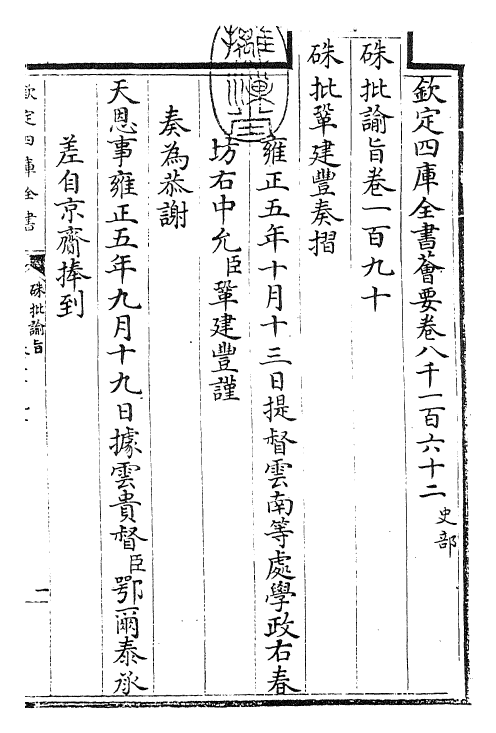 欽定四庫全書薈要卷八千一百六十二 史部
硃批諭旨卷一百九十
硃批鞏建豐奏摺
雍正五年十月十三日提督雲南等處學政右春
坊右中允臣鞏建豐謹
奏為恭謝
天恩事雍正五年九月十九日據雲貴督臣鄂爾泰承
差自京齎捧到
欽定四庫全書
硃批諭旨
一